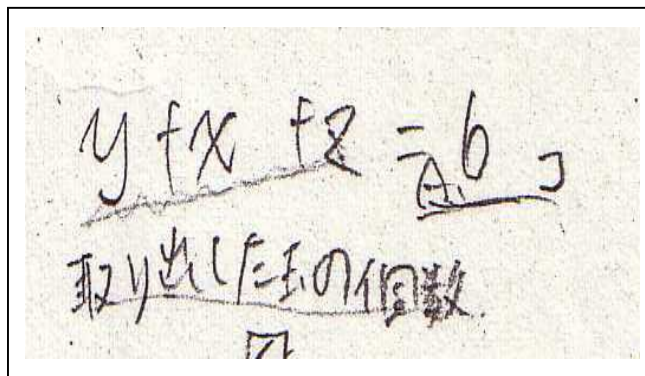 y+x+z=A.6コ
取り出した玉の個数